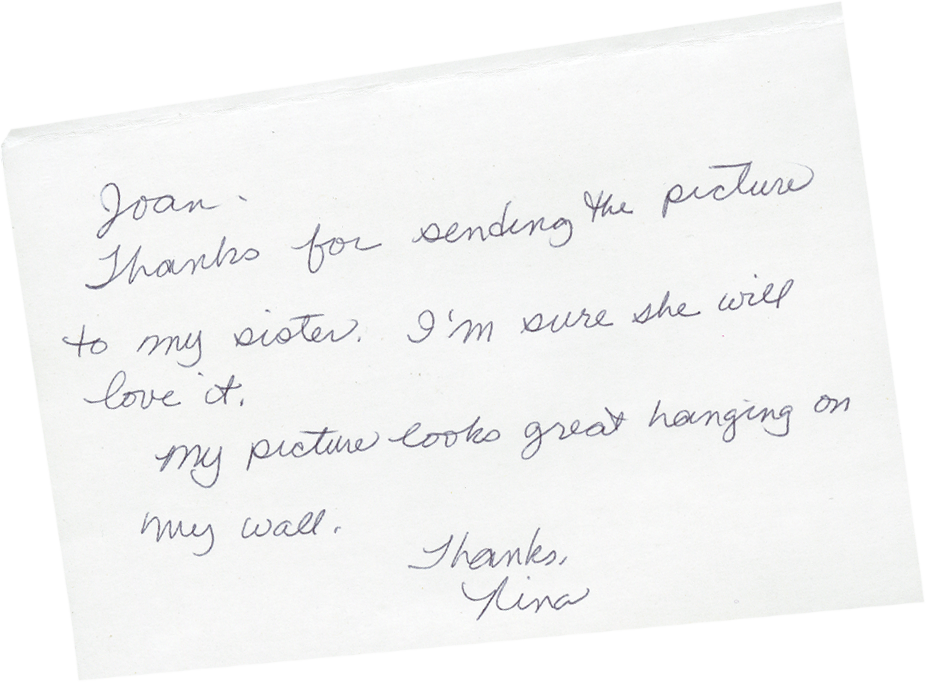 Joan.
Thanks for sending the picture
to my sister. I'm sure she will
love it.
My picture looks great hanging on
my wall.
Thanks,
Nina